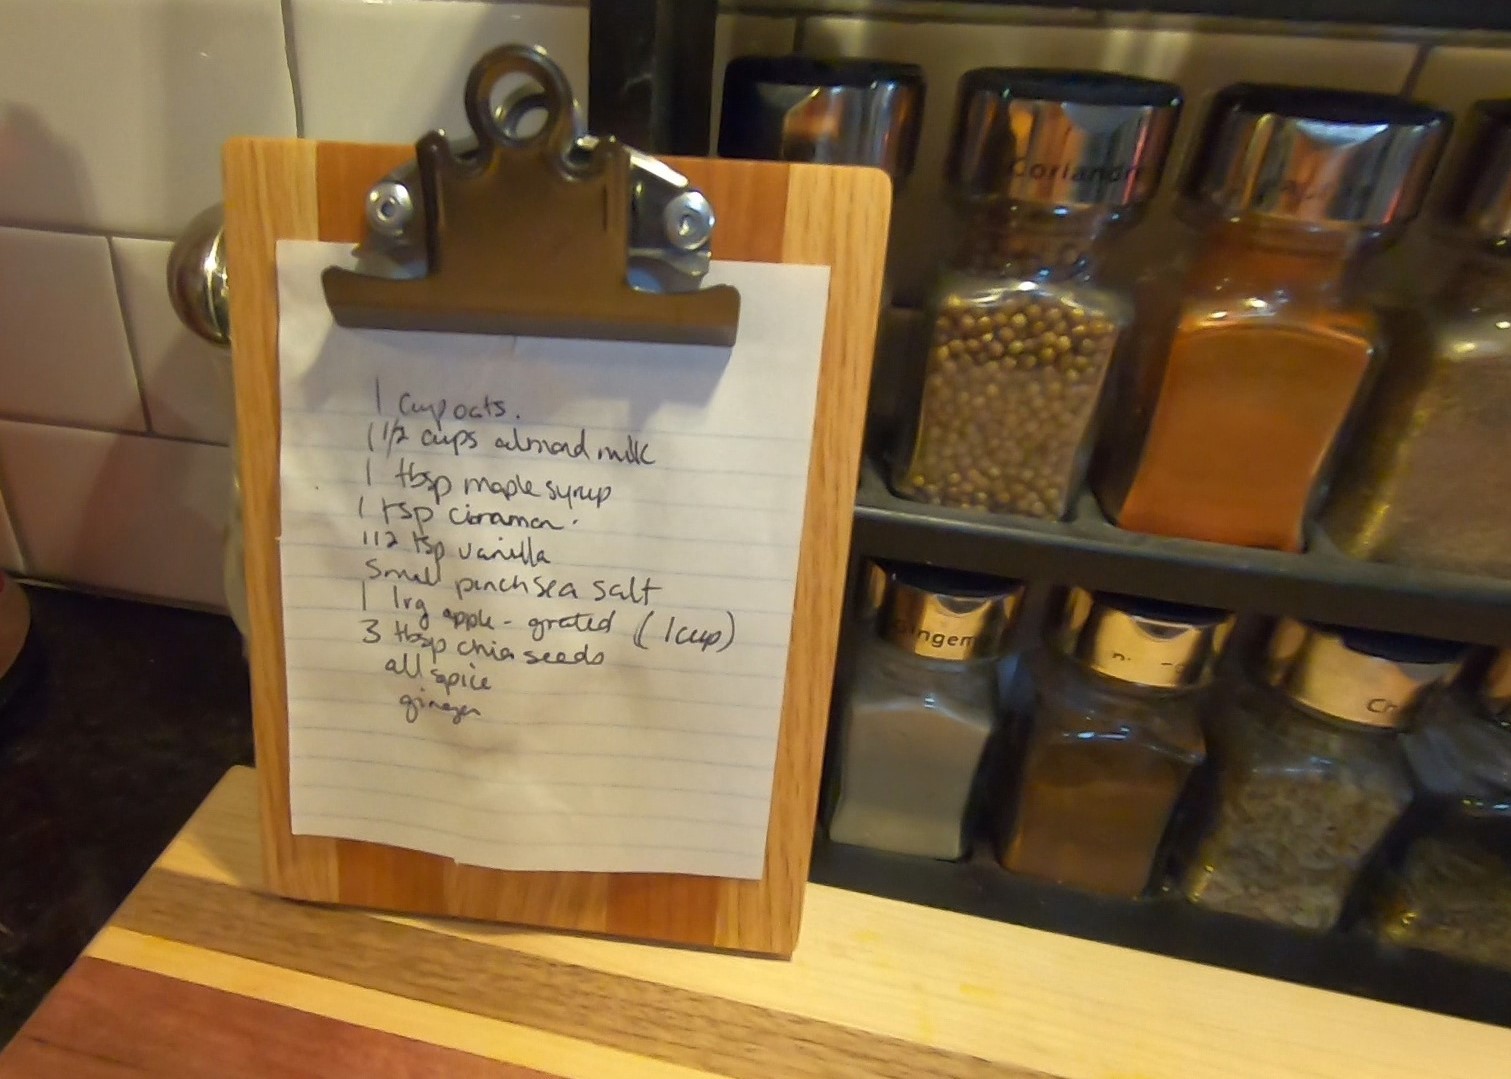 1 cup oats.
1 1/2 cups almond milk
1 tbsp maple syrup
1 tsp cinnamon
1/2 tsp vanilla
small pinch sea salt
1 lrg apple - grated (1 cup)
3 tbsp chia seeds
all spice
ginger
Coriand
Ginger
Ch